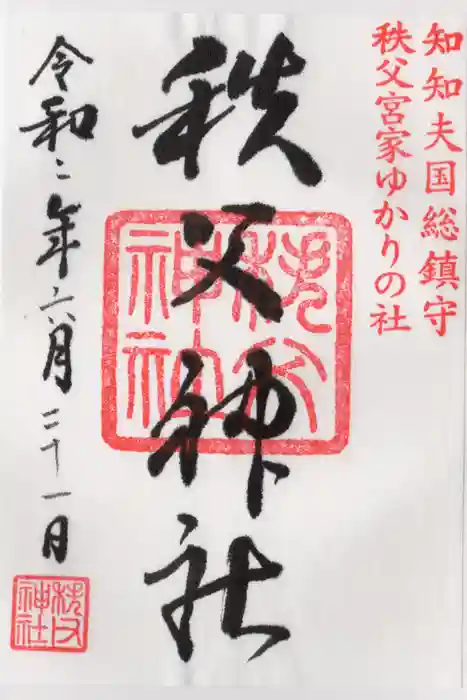 知知夫国総鎮守
秩父宮家ゆかりの社
秩父神社
秩父
神社
令和二年六月二十一日
秩父
神社